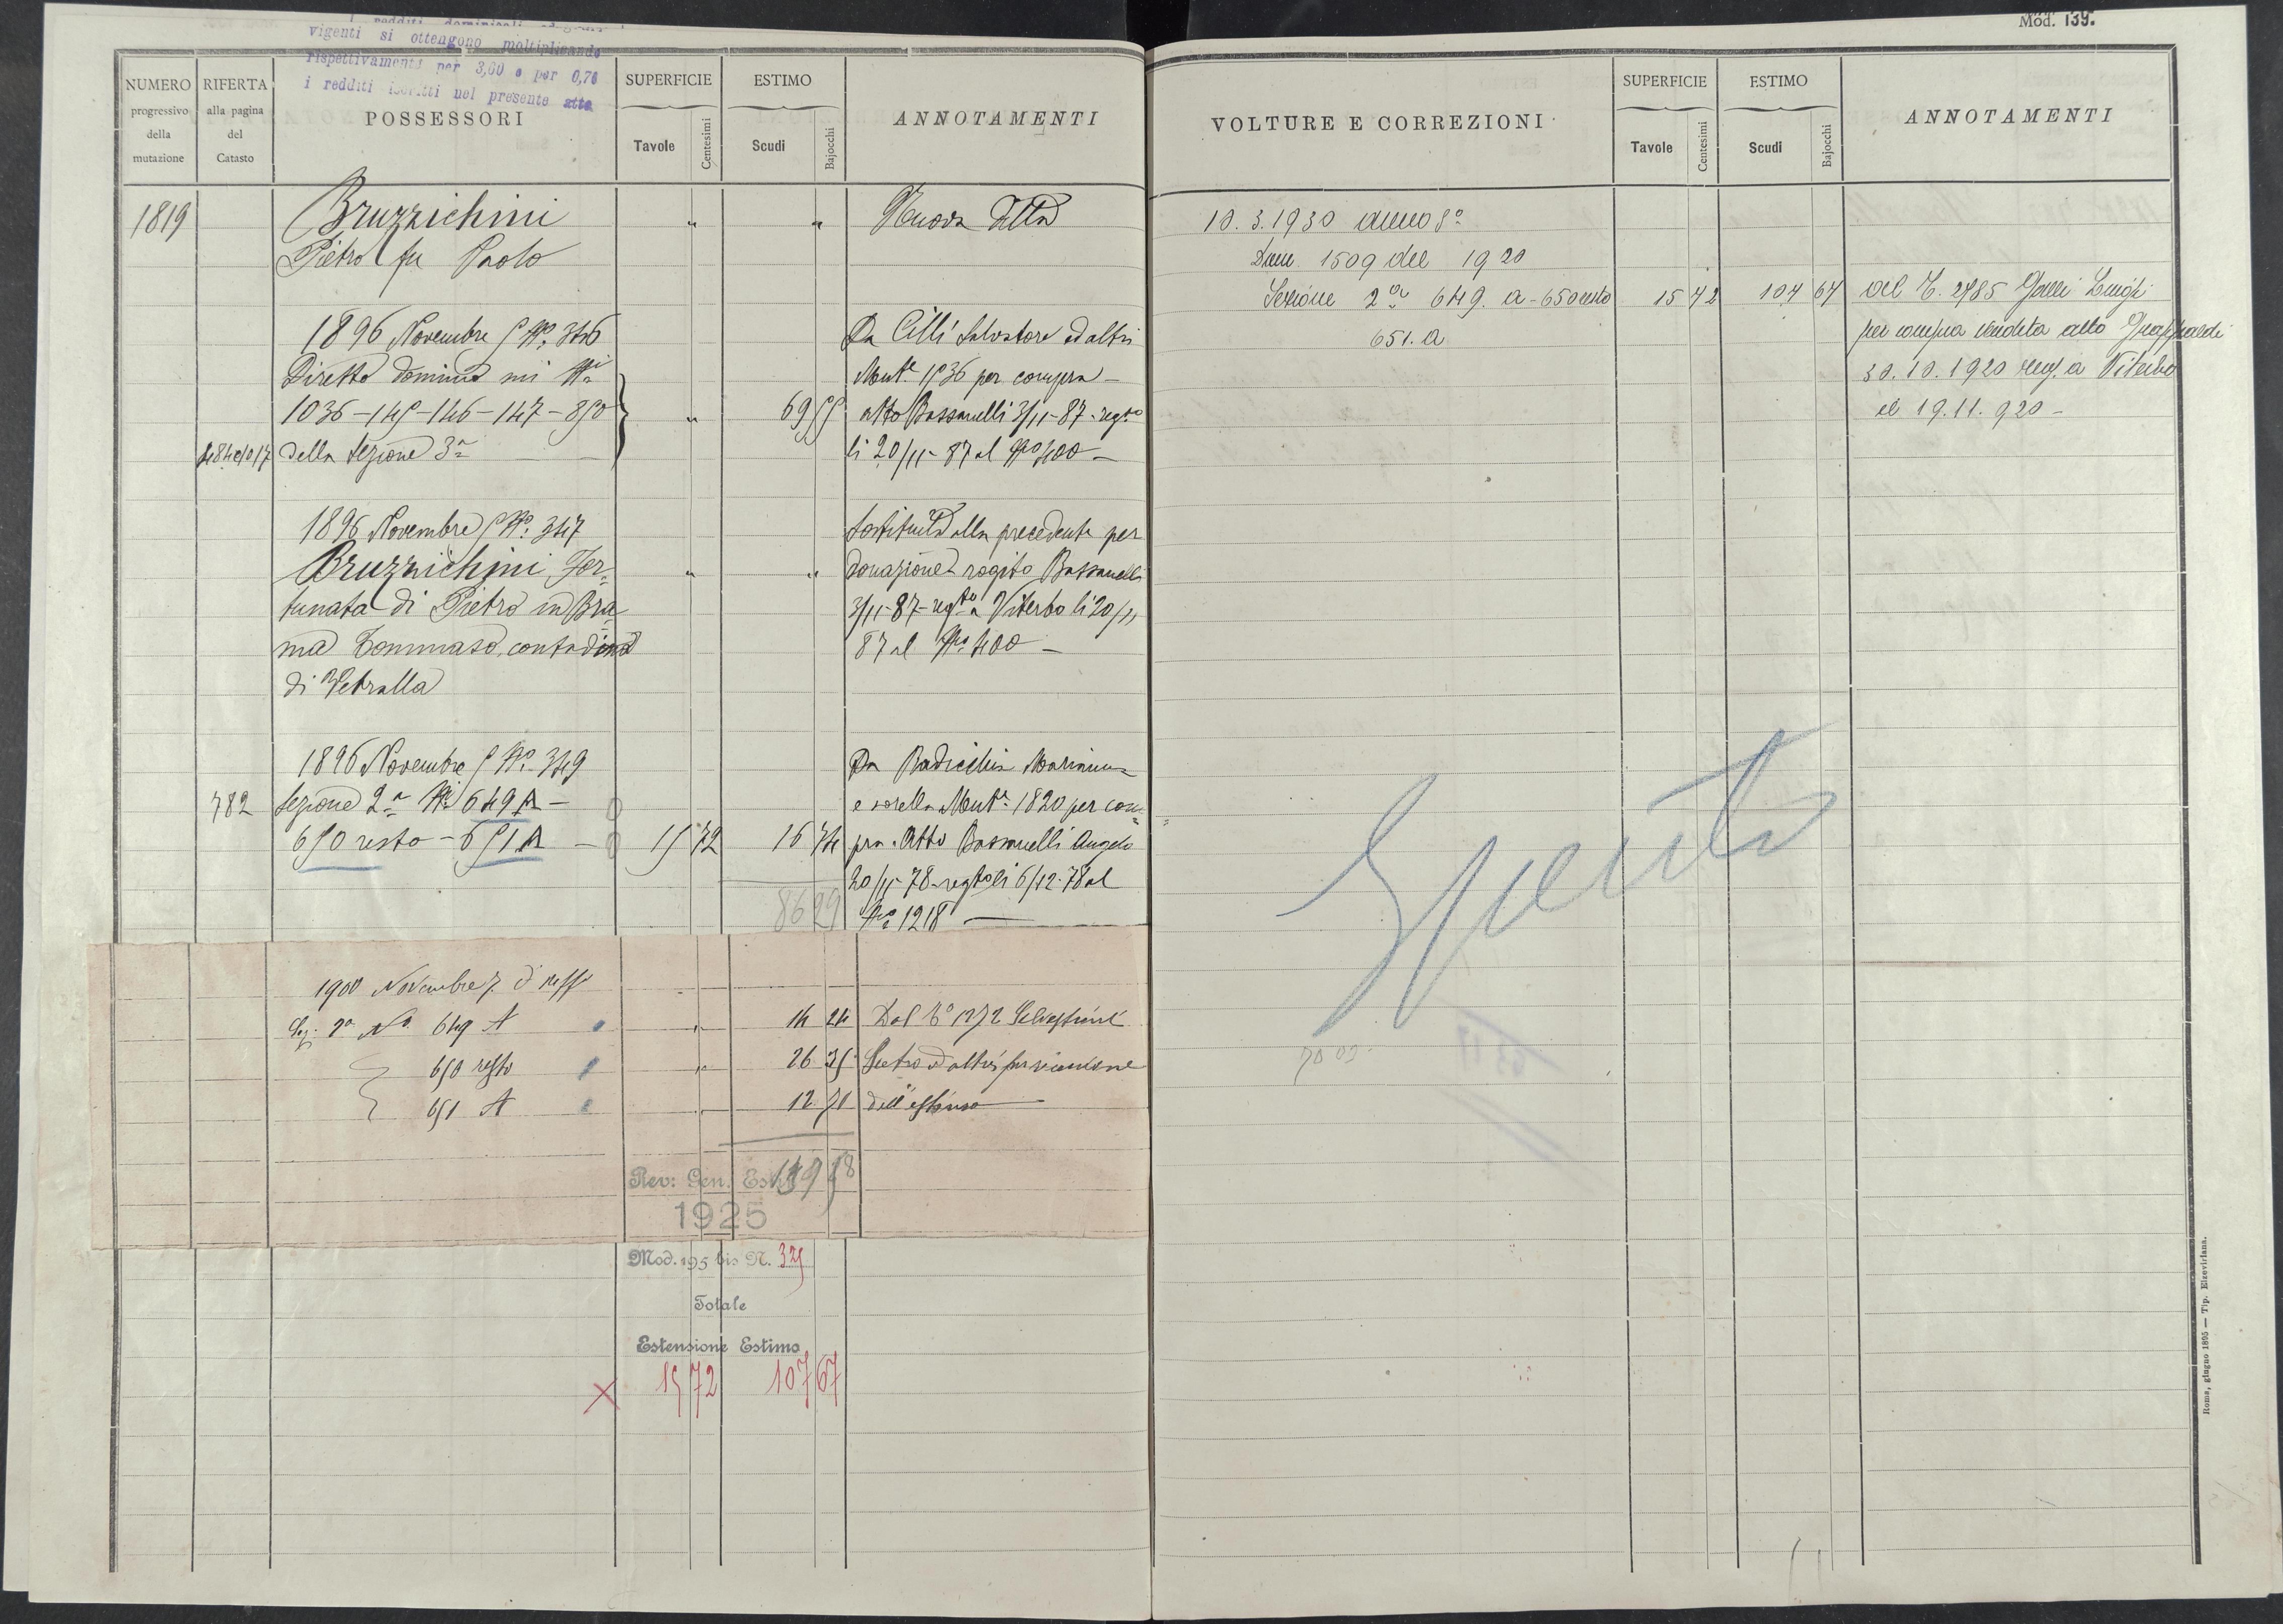 Mod. 139.
vigenti si ottengono moltiplicando
rispettivamente per 3,60 e per 0,76
i redditi iscritti nel presente atto
NUMERO progressivo della mutazione
RIFERTA alla pagina del Catasto
POSSESSORI
SUPERFICIE
Tavole
Centesimi
ESTIMO
Scudi
Bajocchi
ANNOTAMENTI
1819
Bruzzichini " " Nuova Ditta
Pietro fu Paolo
1896 Novembre 5 No. 346
Diretto dominio
1036-145-146-147-850 " 69 55
della Sezione 3a
Da Cilli Salvatore ed altri
Mut.e 1536 per compra -
atto Bassanelli 3/11-87-regto
li 20/11-87 al No 400 -
1896 Novembre 5 No. 347
Bruzzichini For- " "
tunata di Pietro in Bra-
ma Tommaso, contadina
di Vetralla
Sostituita alla precedente per
donazione rogito Bassanelli
3/11-87-regto a Viterbo li 20/11
87 al No. 400 -
1896 Novembre 5 No. 349
782 Sezione 2a Ni 649 A -
650 resto - 651 A - 15 72 16 74
86 29
Da
e sorella Mut.a 1820 per com-
pra. Atto Bassanelli Angelo
20/11-78-regto li 6/12-78 al
No 1218
1900 Novembre 7
Sez: 2a No. 649 A " 14 24
650 resto " 26 35
651 A " 12 71
Dal
Pietro ed altri per riunione
dell'estimo
Rev: Gen. Est.
1925
Mod. 195 bis N. 325
Totale
Estensione Estimo
X 15 72 107 67
VOLTURE E CORREZIONI
SUPERFICIE
Tavole
Centesimi
ESTIMO
Scudi
Bajocchi
ANNOTAMENTI
10.3.1930 anno 8o
1509 del 1920
Sezione 2a 649. a - 650 resto 15 72 107 67
651. a
al T. 2785 Galli Luigi
per compra vendita atto
30.10.1920 reg. a Viterbo
il 19.11.920 -
Spenta
Roma, giugno 1895 — Tip. Elzeviriana.